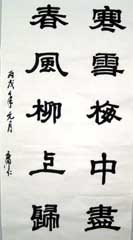 寒雪梅中盡
春風柳上歸
丙戌年元月